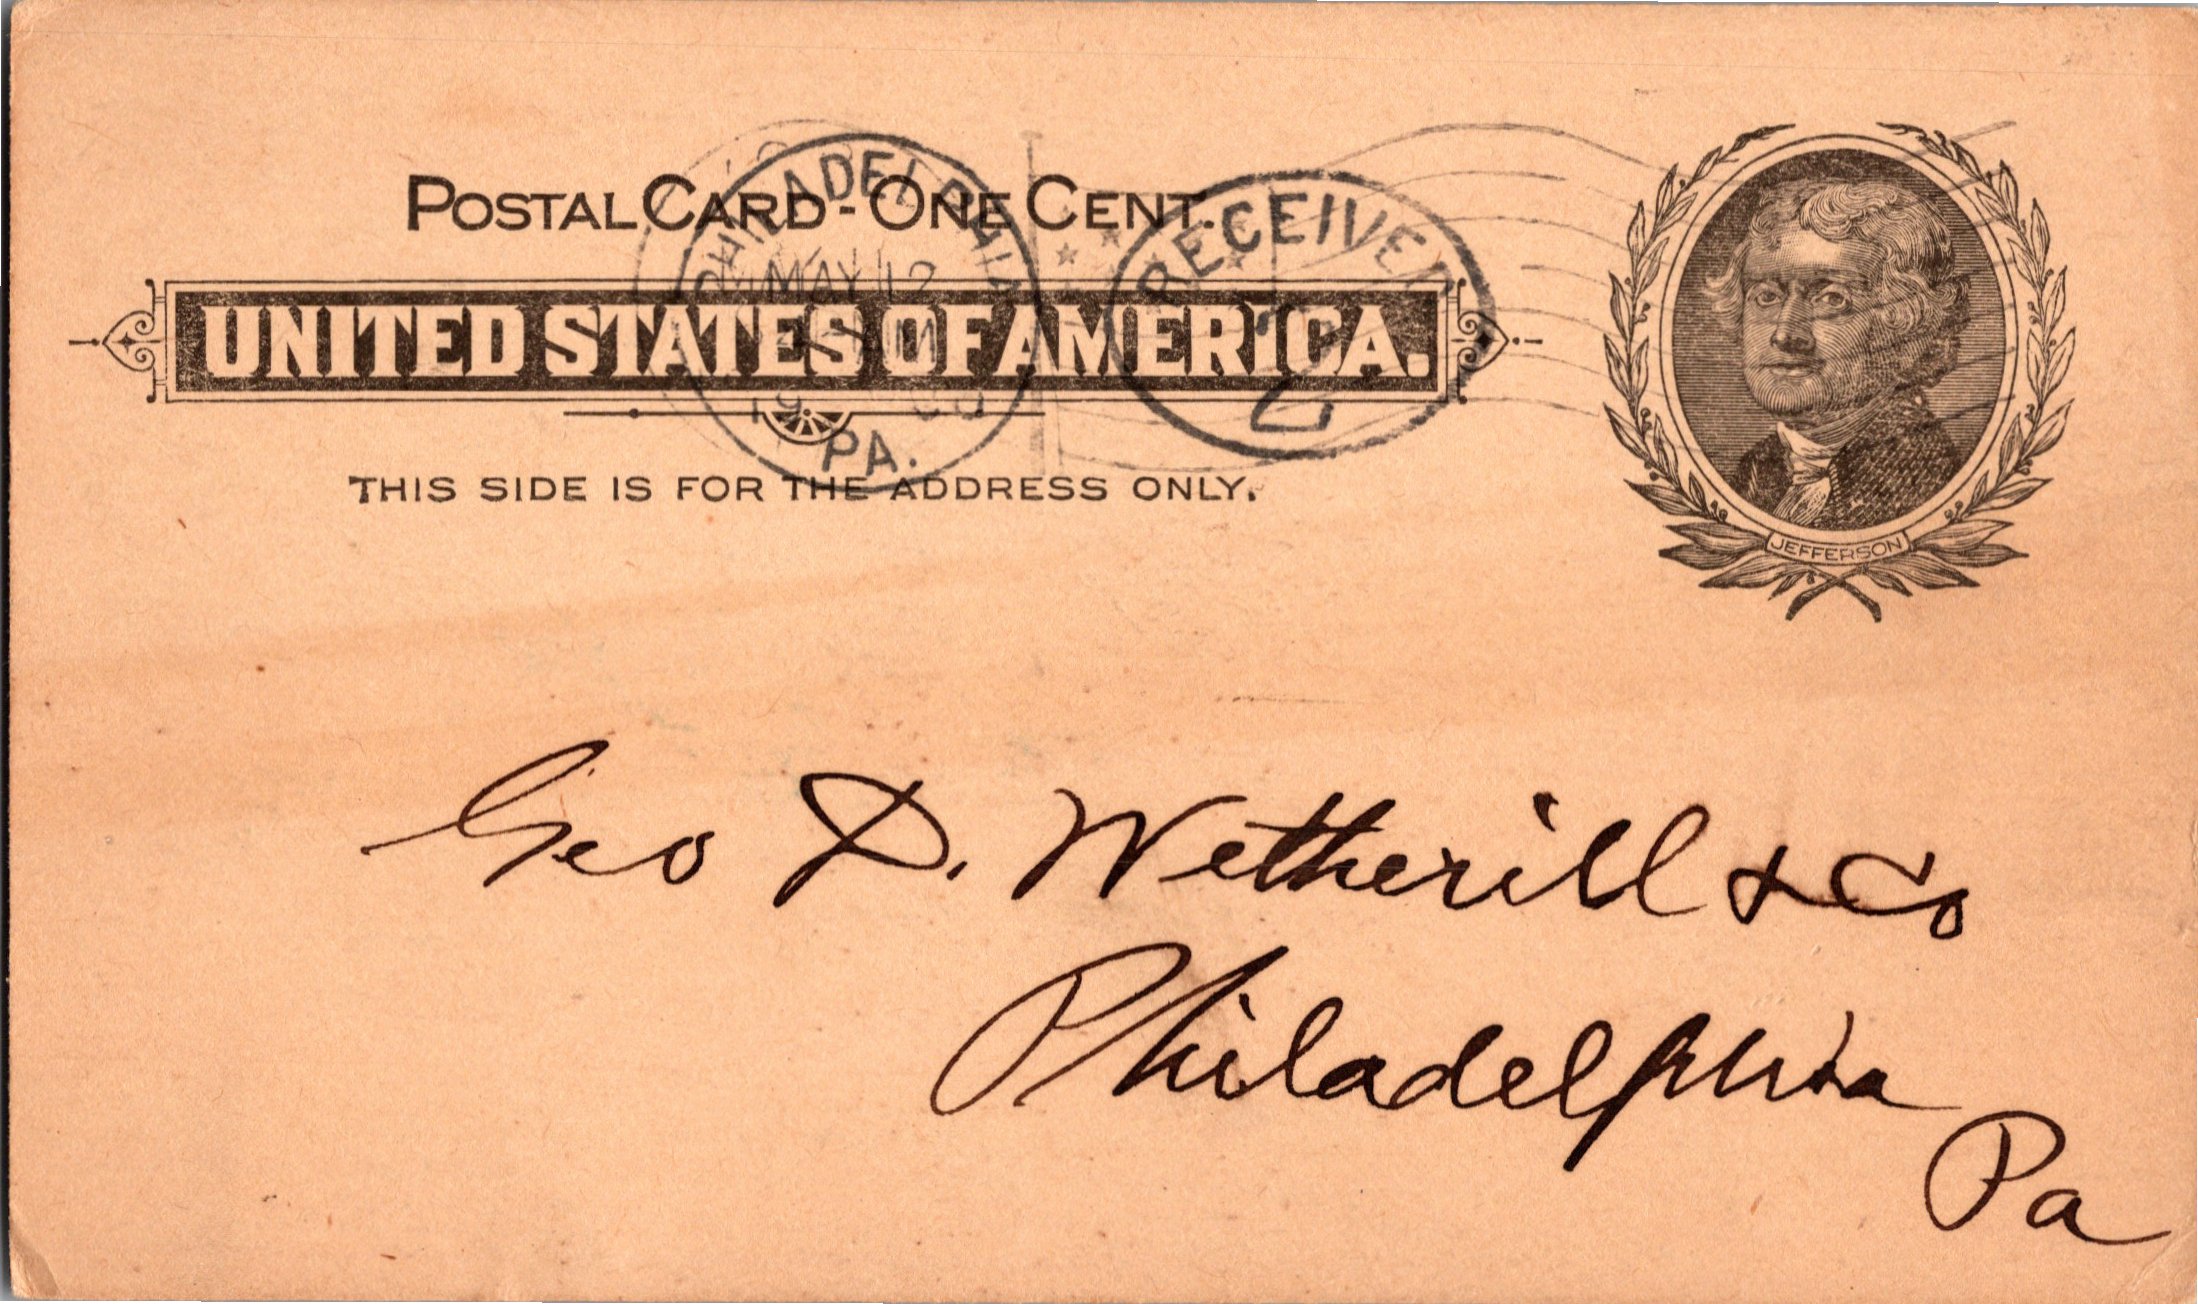 POSTAL CARD - ONE CENT.
UNITED STATES OF AMERICA.
THIS SIDE IS FOR THE ADDRESS ONLY.
JEFFERSON
PHILADELPHIA
MAY 12
PA.
RECEIVED
2
Geo D. Wetherill & Co
Philadelphia
Pa